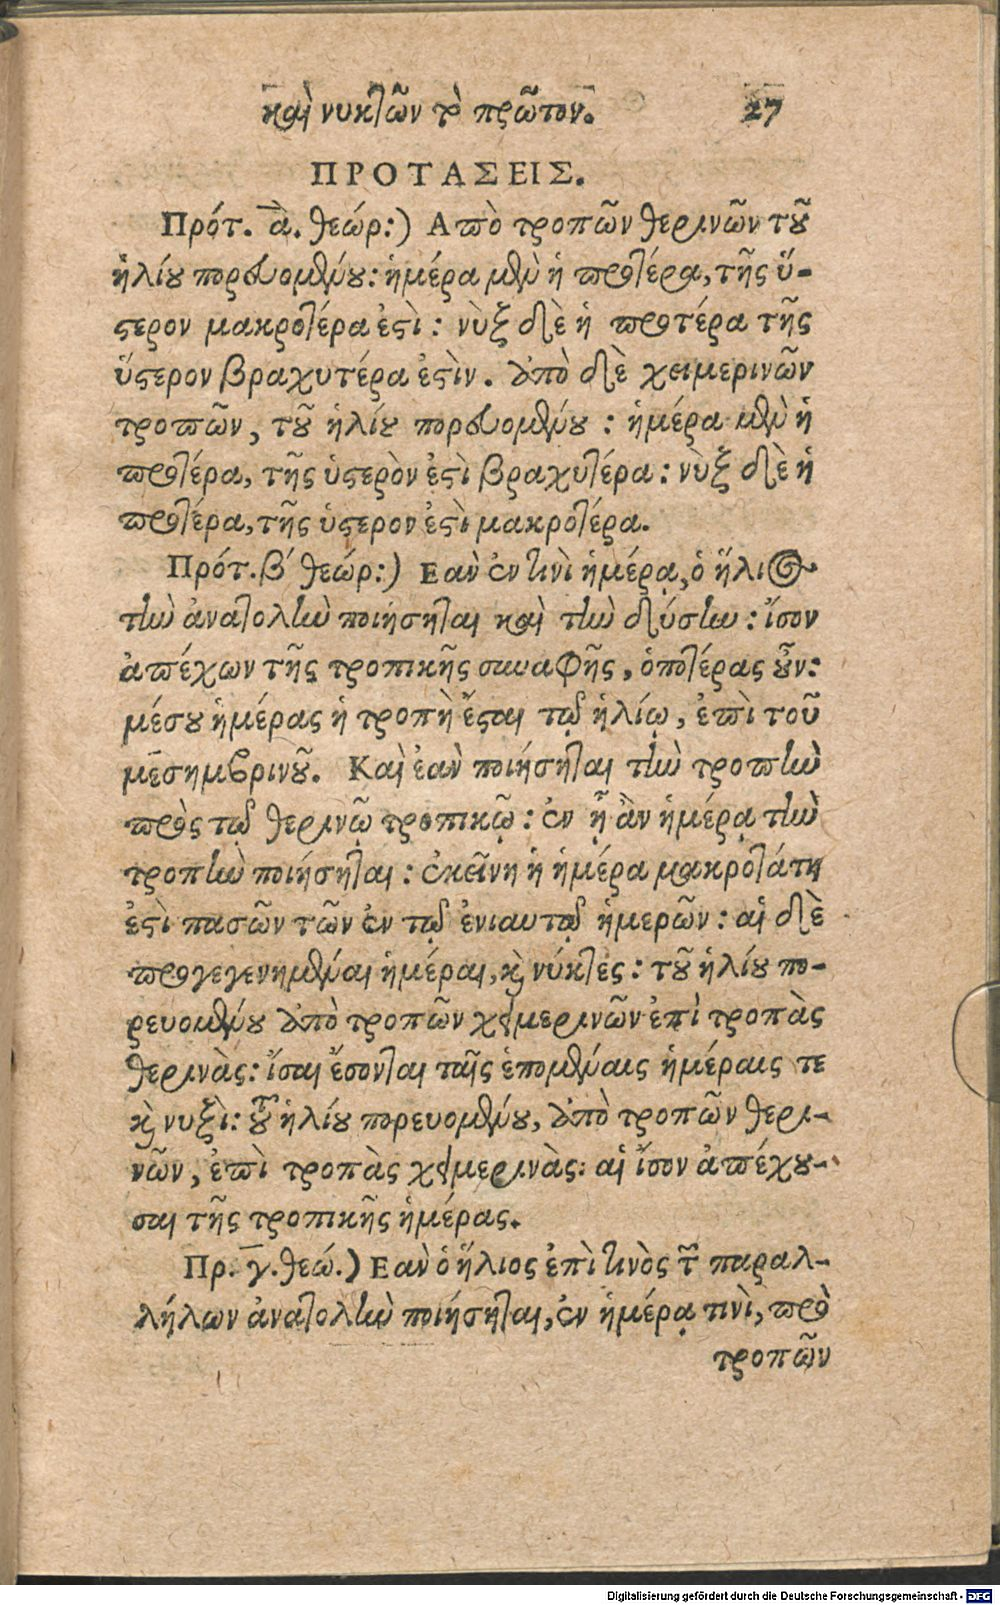 καὶ νυκτῶν τὸ πρῶτον. 27
ΠΡΟΤΑΣΕΙΣ.
Πρότ. α. θεώρ:) Απὸ τροπῶν θερινῶν τοῦ
ἡλίου πορευομένου: ἡμέρα μὲν ἡ προτέρα, τῆς ὕ-
στερον μακροτέρα ἐστὶ: νὺξ δὲ ἡ προτέρα τῆς
ὕστερον βραχυτέρα ἐστὶν. ἀπὸ δὲ χειμερινῶν
τροπῶν, τοῦ ἡλίου πορευομένου: ἡμέρα μὲν ἡ
προτέρα, τῆς ὑστερὸν ἐστὶ βραχυτέρα: νὺξ δὲ ἡ
προτέρα, τῆς ὑστερον ἐστὶ μακροτέρα.
Πρότ. β´ θεώρ:) Εαν ἐν τινὶ ἡμέρᾳ, ὁ ἥλιος
τὴν ἀνατολὴν ποιήσηται καὶ τὴν δύσιν: ἴσον
ἀπέχων τῆς τροπικῆς συναφῆς, ὁποτέρας οὖν:
μέσου ἡμέρας ἡ τροπὴ ἔσται τῷ ἡλίῳ, ἐπὶ τοῦ
μεσημβρινοῦ. Καὶ ἐαν ποιήσηται τὴν τροπὴν
πρὸς τῷ θερινῷ τροπικῷ: ἐν ᾗ ἂν ἡμέρᾳ τὴν
τροπὴν ποιήσηται: ἐκείνη ἡ ἡμέρα μακροτάτη
ἐστὶ πασῶν τῶν ἐν τῷ ἐνιαυτῷ ἡμερῶν: αἱ δὲ
προγεγενημέναι ἡμέραι, καὶ νύκτες: τοῦ ἡλίου πο-
ρευομένου ἀπὸ τροπῶν χειμερινῶν ἐπὶ τροπὰς
θερινὰς: ἴσαι ἔσονται ταῖς ἑπομέναις ἡμέραις τε
καὶ νυξὶ: τοῦ ἡλίου πορευομένου, ἀπὸ τροπῶν θερι-
νῶν, ἐπὶ τροπὰς χειμερινὰς: αἱ ἴσον ἀπέχου-
σαι τῆς τροπικῆς ἡμέρας.
Πρ. γ. θεώ.) Εαν ὁ ἥλιος ἐπὶ τινὸς τῶν παραλ-
λήλων ἀνατολὴν ποιήσηται, ἐν ἡμέρᾳ τινὶ, πρὸ
τροπῶν
Digitalisierung gefördert durch die Deutsche Forschungsgemeinschaft - DFG